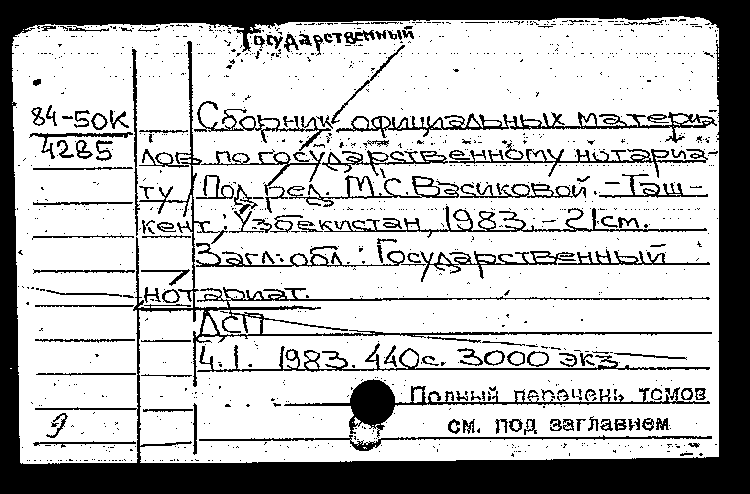 Государственный
84-50К
4285
Сборник официальных материа
лов по государственному нотариа-
ту / Под ред. М.С. Васиковой. – Таш-
кент : Узбекистан, 1983. – 21 см.
Загл. обл. : Государственный
нотариат.
ДСП
Ч. 1. 1983. 440 с. 3000 экз.
Полный перечень томов
см. под заглавием
9